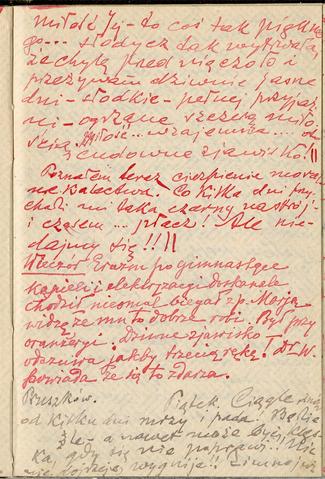 miłość Jej - to coś tak piękne
go... słodycz tak wytrwała,
że chylę przed nią czoło i
przeżywam dziwnie jasne
dni - słodkie - pełne przyjaź
ni - ogrzane szczerą miło
ścią. Miłość... wzajemna...
cudowne zjawisko!!
Poznałem teraz cierpienie moral
ne Kalectwa. Co kilka dni przy
chodzi mi taka czarny nastrój -
i czasem... płacz! Ale nie-
dajmy się!!!
Wieczór Erazm po gimnastyce
kąpieli i elektryzacji doskonale
chodził niemal biegał z p. Marją
widzę że mu to dobrze robi. Był przy
oranżerji. dziwne zjawisko -
odczuwa jakby trzecią rękę! dr W.
powiada że się to zdarza.
Pruszków. Piątek. Ciągle
od kilku dni mży i pada. Będzie
źle - a nawet może być klęs-
ka, gdy się nie poprawi!!
wygnija!! Zimno